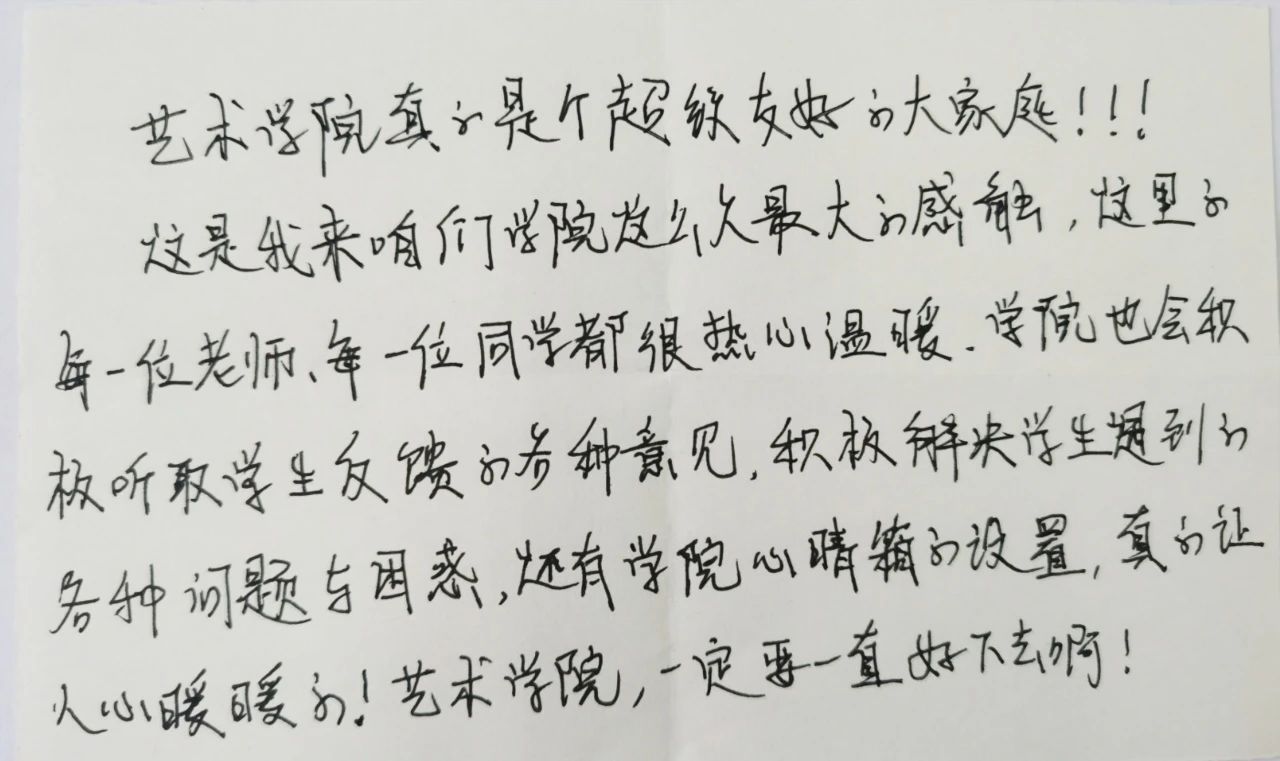 艺术学院真的是个超级友好的大家庭！！！
这是我来咱们学院这么久最大的感触，这里的
每一位老师、每一位同学都很热心温暖．学院也会积
极听取学生反馈的各种意见，积极解决学生遇到的
各种问题与困惑，还有学院心晴箱的设置，真的让
人心暖暖的！艺术学院，一定要一直好下去啊！